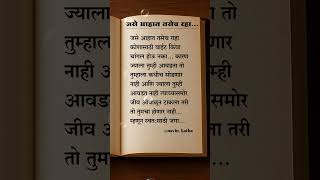 जसे आहात तसेच रहा...
जसे आहात तसेच राहा
कोणासाठी वाईट किंवा
चांगलं होऊ नका... कारण
ज्याला तुम्ही आवडता तो
तुम्हाला कधीच सोडणार
नाही आणि ज्याला तुम्ही
आवडत नाही त्याच्यासमोर
जीव ओवाळून टाकला तरी
तो तुमचा होणार नाही...
म्हणून स्वतःसाठी जगा...